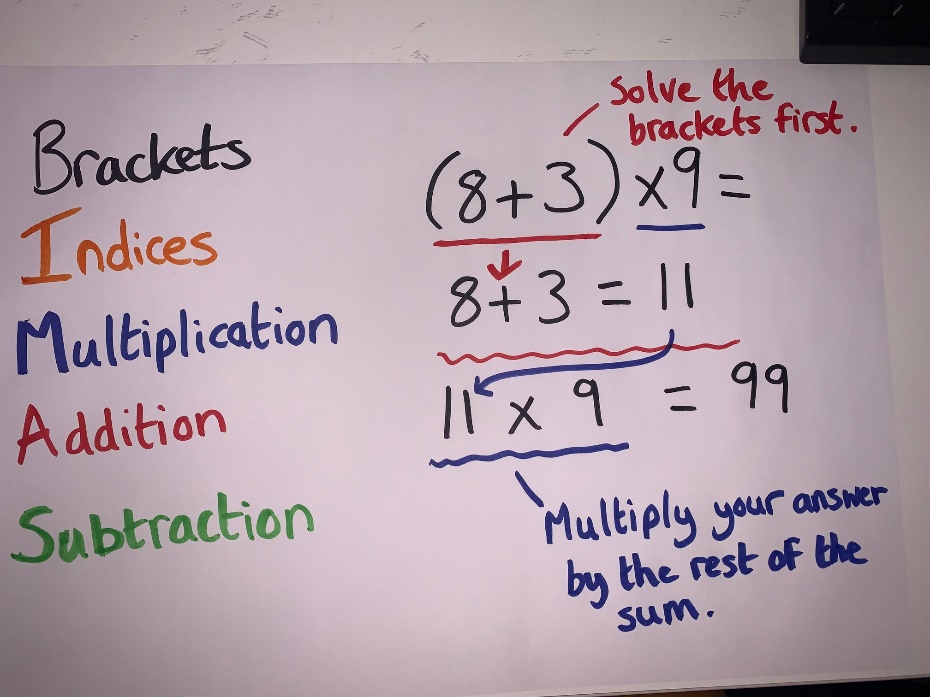 Brackets
Indices
Multiplication
Addition
Subtraction
Solve the
brackets first.
(8+3) x9=
8+3 = 11
11 x 9 = 99
Multiply your answer
by the rest of the
sum.